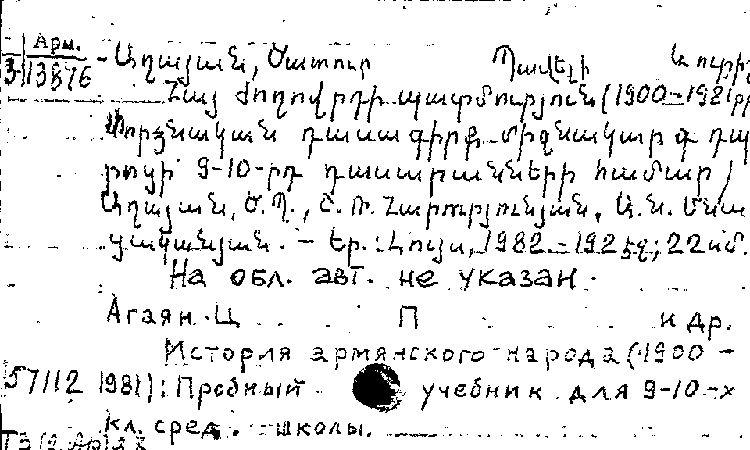 Арм.
3 13876 - Աղայան, Ծատուր Պավելի և ուրիշ
Հայ ժողովրդի պատմություն (1900-1981թթ
Փորձնական դասագիրք միջնակարգ դպ
րոցի 9-10-րդ դասարանների համար /
Աղայան, Ծ. Պ., Շ. Ռ. Հարությունյան, Ա. Ն. Մնա
ցականյան. - Եր.: Լույս, 1982. - 192 էջ; 22 սմ.
На обл. авт. не указан.
Агаян Ц П и др.
История армянского народа (1900-
57112 1981): Пробный учебник для 9-10-х
кл. сред. школы.